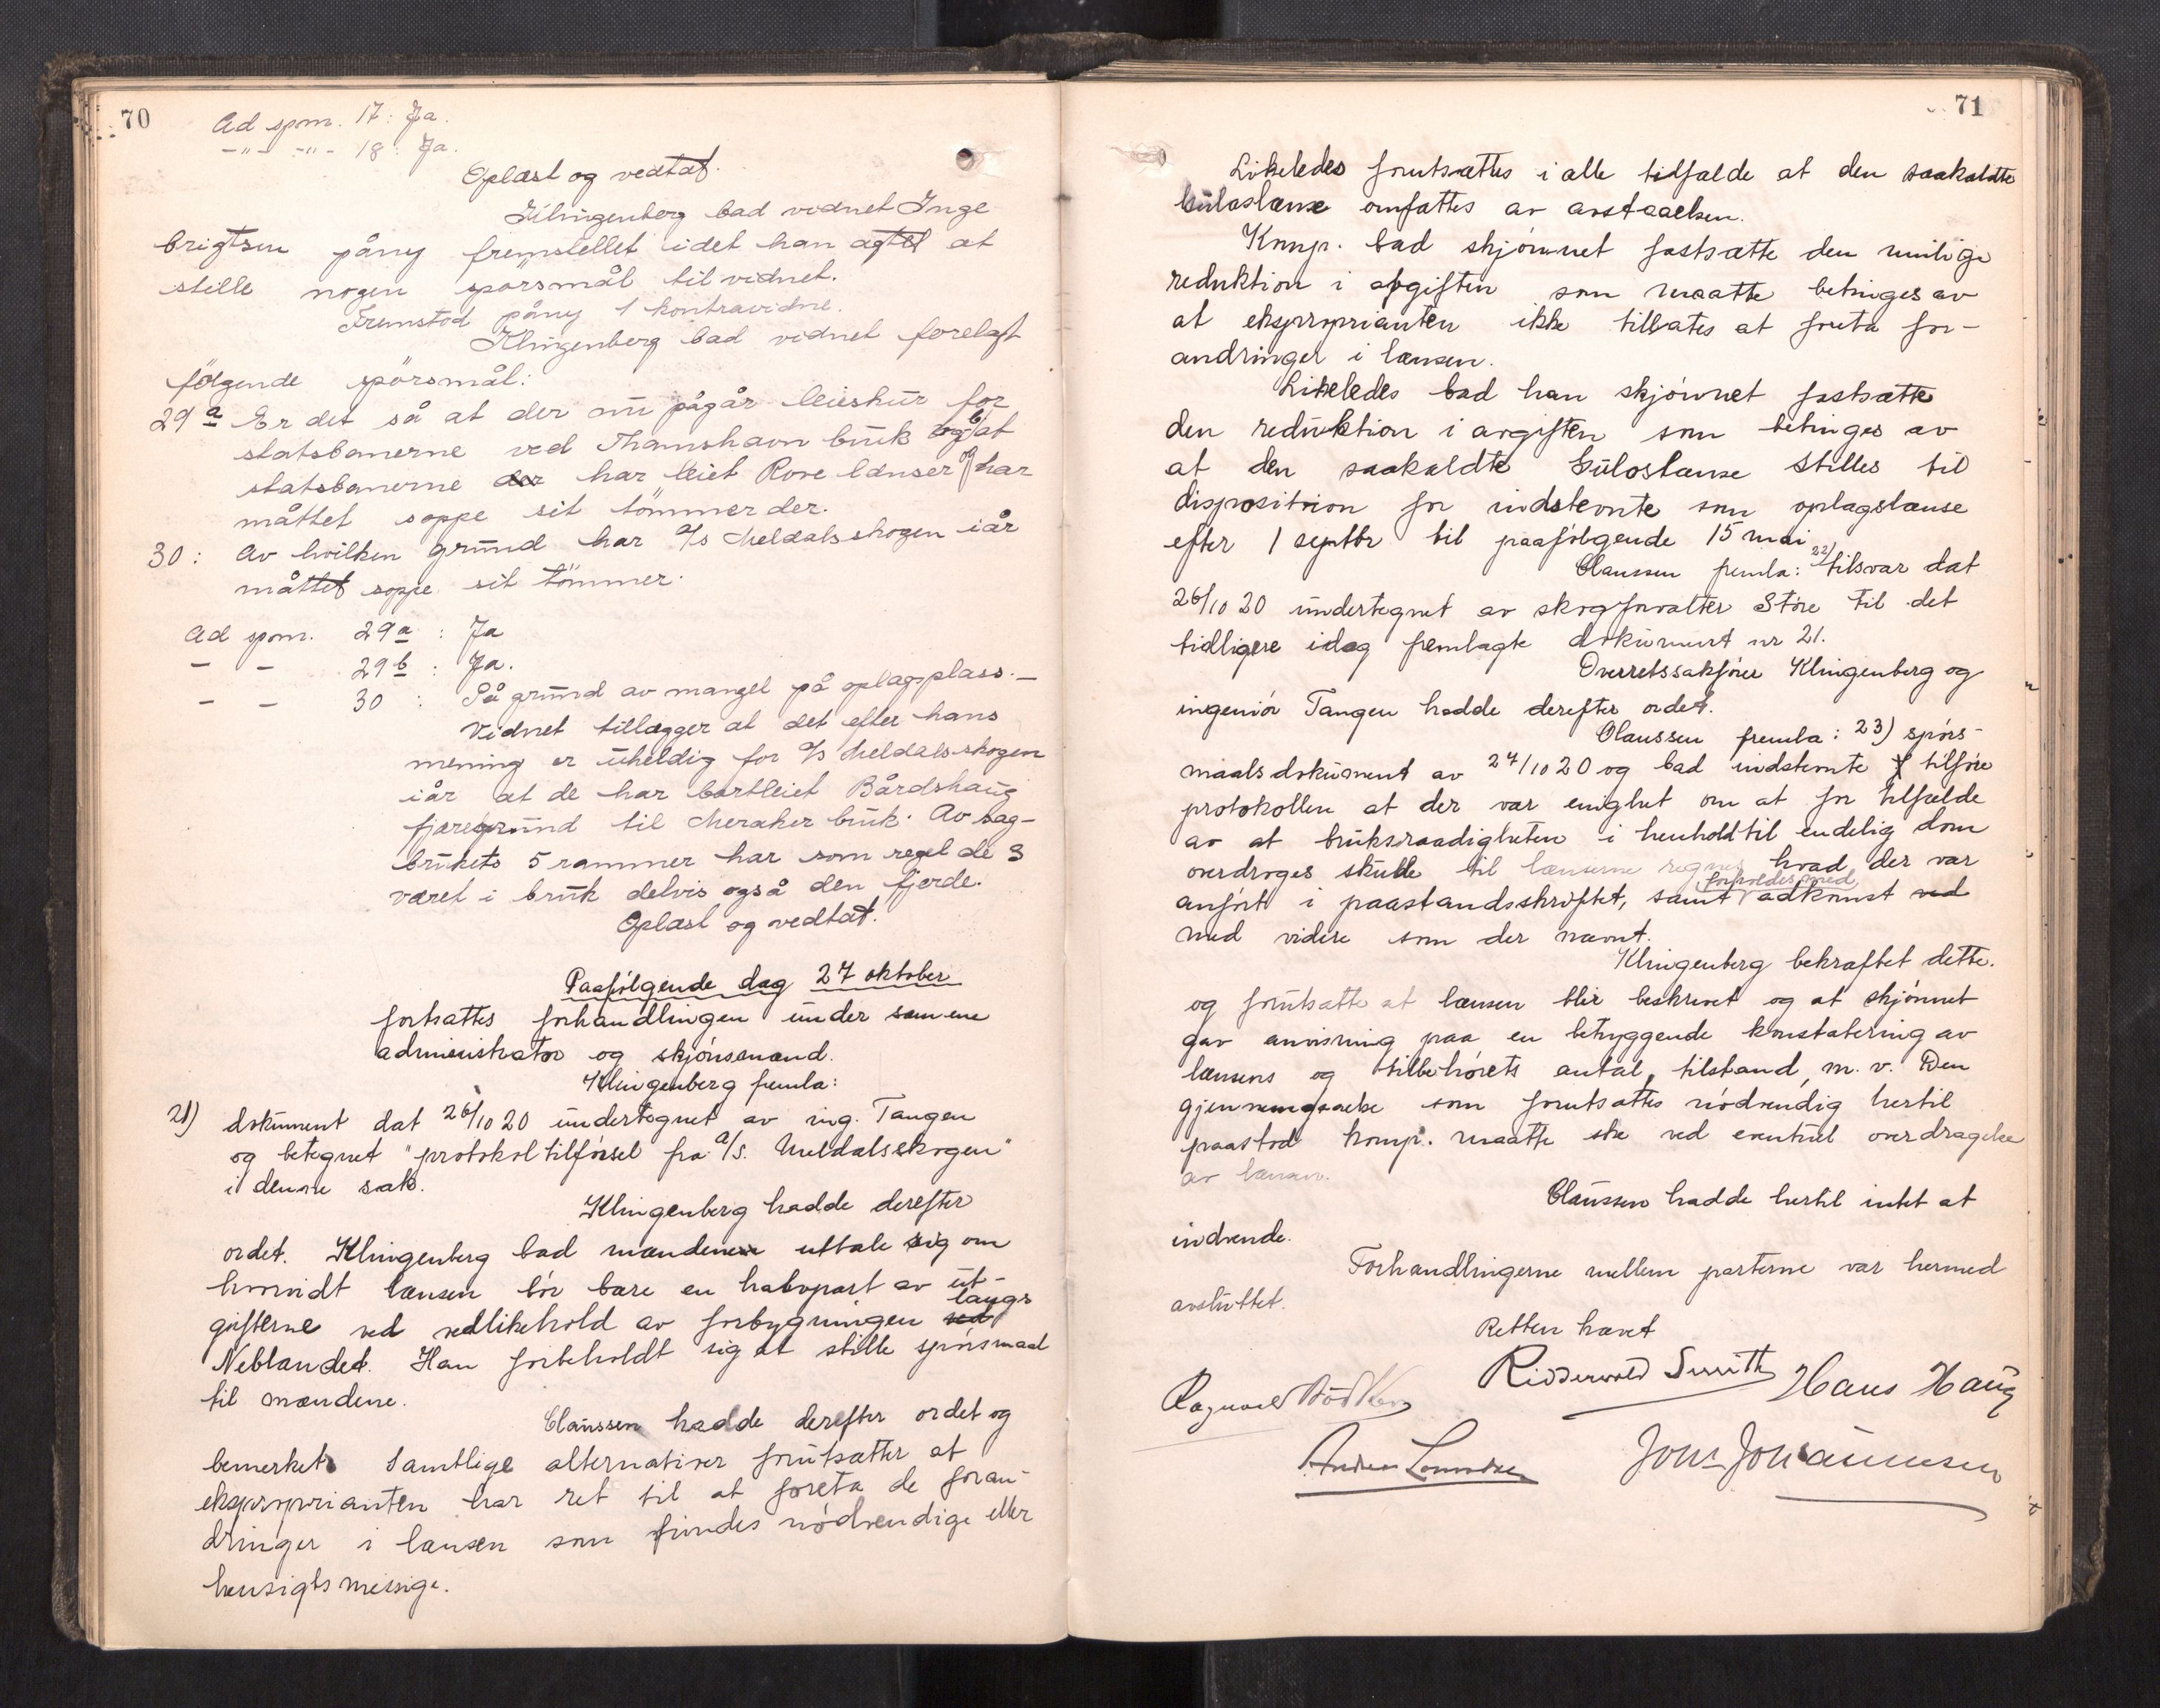 70
Ad spm. 17: Ja.
-"- -"- 18: Ja.
Oplæst og vedtat.
Klingenberg bad vidnet Inge
brigtsen påny fremstellet idet han agtet at
stille nogen spörsmål til vidnet.
Fremstod påny 1 kontravidne.
Klingenberg bad vidnet forelagt
fölgende spörsmål:
29 a Er det så at der nu pågår leieskur for
statsbanerne ved Thamshavn bruk og b/ at
statsbanerne der har leiet Rove lænser og har
måttet soppe sit tömmer der.
30: Av hvilken grund har A/s Meldalsskogen iår
måttet soppe sit tömmer.
Ad spm. 29a : Ja
- - 29b : Ja.
- - 30 : På grund av mangel på oplagsplass.-
Vidnet tillægger at det efter hans
mening er uheldig for A/s Meldalsskogen
iår at de har bortleiet Bårdshaug
fjæregrund til Meraker bruk. Av sag-
brukets 5 rammer har som regel de 3
været i bruk delvis også den fjerde.
Oplæst og vedtat.
Paafølgende dag 27 oktober
fortsattes forhandlingen under samme
administrator og skjønsmænd.
Klingenberg fremla:
21) dokument dat 26/10 20 undertegnet av ing. Tangen
og betegnet "protokoltilførsel fra A/S. Meldalsskogen"
i denne sak.
Klingenberg hadde derefter
ordet. Klingenberg bad mændene uttale sig om
hvorvidt lænsen bør bære en halvpart av ut-
gifterne ved vedlikehold av forbygningen ved langs
Neblandet. Han forbeholdt sig at stille spørsmaal
til mændene.
Claussen hadde derefter ordet og
bemerket Samtlige alternativer forutsætter at
eksproprianten har ret til at foreta de foran-
dringer i lænsen som findes nødvendige eller
hensigtsmessige.
71
Likeledes forutsættes i alle tilfælde at den saakaldte
Guloslænse omfattes av avstaaelsen.
Komp. bad skjønnet fastsætte den mulige
reduktion i afgiften som maatte betinges av
at eksproprianten ikke tillates at foreta for-
andringer i lænsen.
Likeledes bad han skjønnet fastsætte
den reduktion i avgiften som betinges av
at den saakaldte Guloslænse stilles til
disposition for indstevnte som oplagslænse
efter 1 septbr til paafølgende 15 mai
Claussen fremla: 22) tilsvar dat
26/10 20 undertegnet av skogforvalter Støre til det
tidligere idag fremlagte dokument nr 21.
Overretssakfører Klingenberg og
ingeniør Tangen hadde derefter ordet.
Claussen fremla: 23) spørs-
maalsdokument av 27/10 20 og bad indstevnte tilføre
protokollen at der var enighet om at for tilfælde
av at bruksraadigheten i henhold til endelig dom
overdroges skulde til lænserne regnes hvad der var
anført i paastandsskriftet, samt forholdes med adkomst ved
med videre som der nævnt.
Klingenberg bekræftet dette.
og forutsatte at lænsen blir beskrevet og at skjønnet
gav anvisning paa en betryggende konstatering av
lænsens og tilbehørets antal, tilstand, m.v. Den
gjennemgaaelse som forutsattes nødvendig hertil
paastod komp. maatte ske ved eventuel overdragelse
av lænsen.
Claussen hadde hertil intet at
indvende.
Forhandlingerne mellem parterne var hermed
avsluttet.
Retten hævet
Ridderwold Smith Hans Haug
Ragnvald Bødtker
John Johannessen